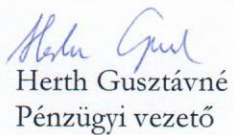 Herth Gusztávné
Pénzügyi vezető